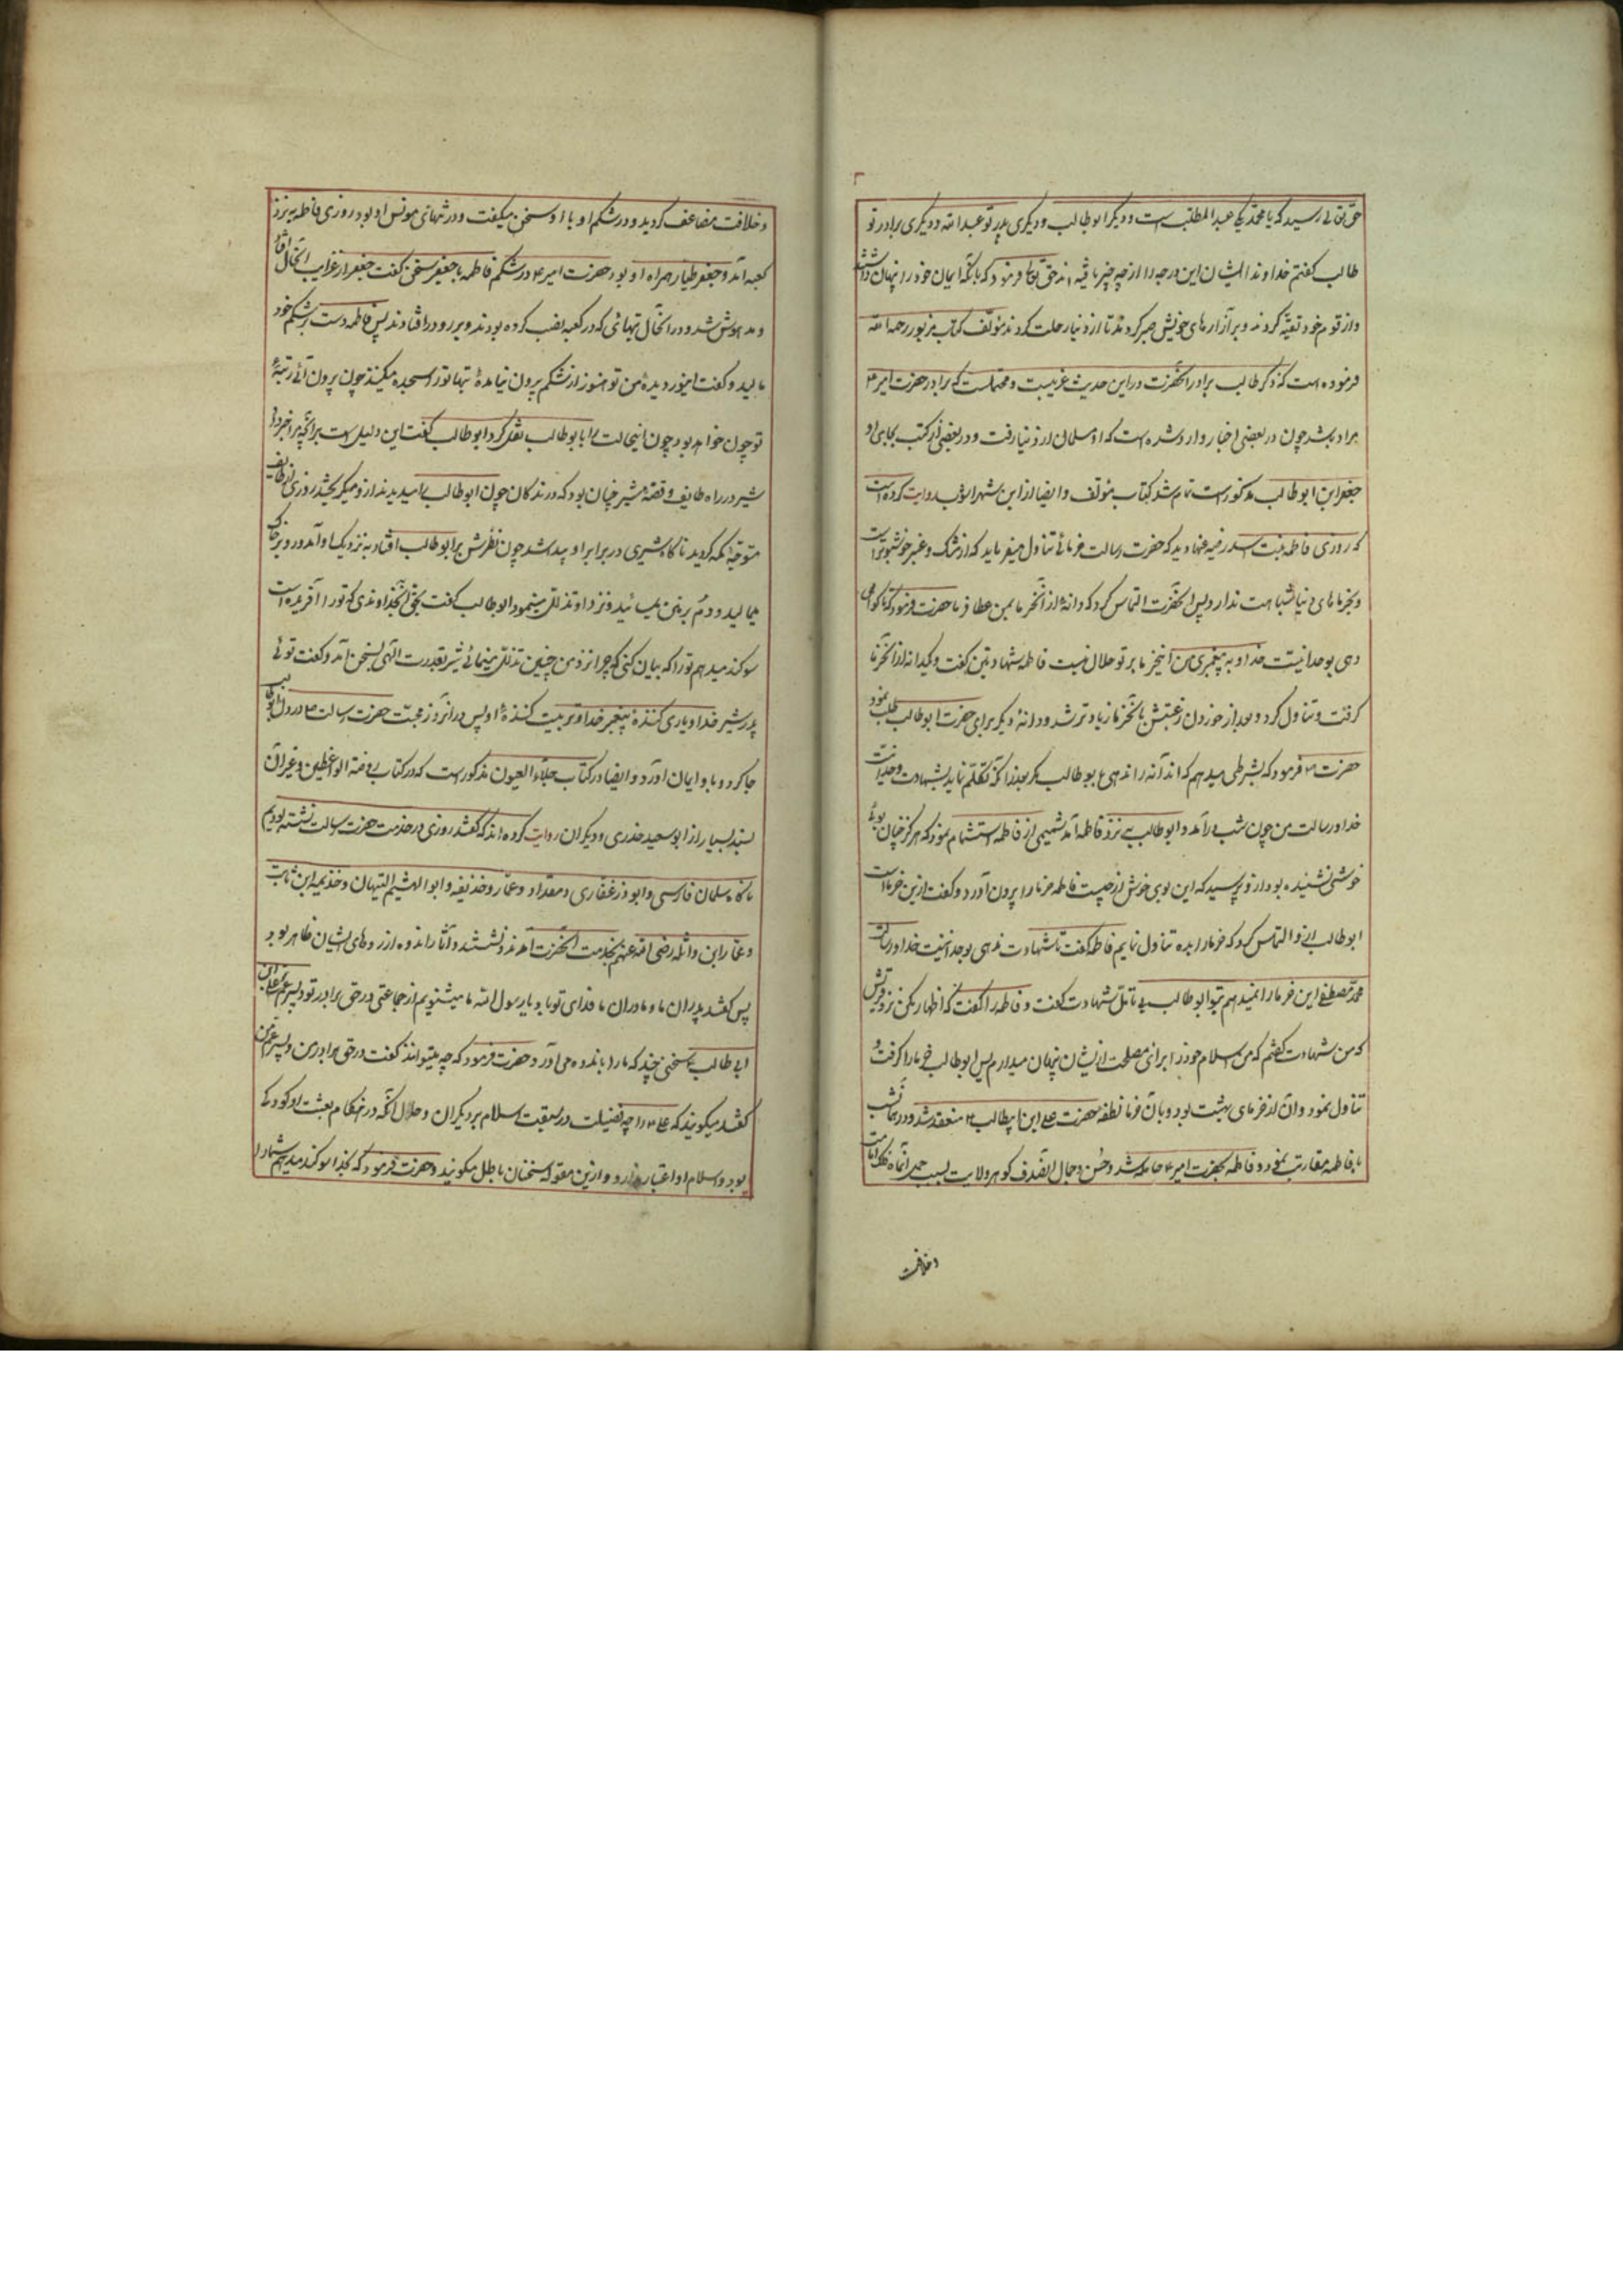 حق تعالی رسید که یا محمد یکی عبدالمطلب است و دیگر ابوطالب و دیگری پدر تو عبدالله و دیگری برادر تو
طالب گفتم خداوندا ایشان این درجه را از چه چیز یافته اند حق تعالی فرمود که بانکه ایمان خود را پنهان داشتند
و از قوم خود تقیه کردند و بر آزارهای خویش صبر کردند تا از دنیا رحلت کردند مؤلف کتاب مزبور رحمه الله
فرموده است که ذکر طالب برادر آنحضرت در این حدیث غریبست و محتملست که برادر حضرت امیر
مراد باشد چون در بعضی اخبار وارد شده است که او مسلمان از دنیا رفت و در بعضی از کتب بجای او
جعفر ابن ابوطالب مذکور است تمام شد کتاب مؤلف و ایضا از ابن شهرآشوب روایت کرده است
که روزی فاطمه بنت اسد رضیه عنها دید که حضرت رسالت خرمائی تناول میفرماید که از مشک و عنبر خوشبوتر است
و بخرماهای دنیا شباهت ندارد پس از آنحضرت التماس کرد که دانه از آن خرما بمن عطا فرما حضرت فرمود که تا گواهی
دهی بوحدانیت خدا و به پیغمبری من این خرما بر تو حلال نیست فاطمه شهادتین گفت و یکدانه از آن خرما
گرفت و تناول کرد و بعد از خوردن رغبتش بآنخرما زیادتر شد و دانه دیگر برای حضرت ابوطالب طلب نمود
حضرت فرمود که بشرطی میدهم که آن دانه را ندهی بابوطالب مگر بعد از آنکه تکلم نماید بشهادت وحدانیت
خدا و رسالت من چون شب درآمد و ابوطالب به نزد فاطمه آمد شمیمی از فاطمه استشمام نمود که هرگز چنان بوی
خوشی نشنیده بود از او پرسید که این بوی خوش از چیست فاطمه خرما را بیرون آورد و گفت ازین خرماست
ابوطالب از او التماس کرد که خرما را بده تناول نمایم فاطمه گفت تا شهادت ندهی بوحدانیت خدا و رسالت
محمد مصطفی این خرما را نمیدهم بتو ابوطالب بی تامل شهادت گفت و فاطمه را گفت که اظهار مکن نزد قریش
که من شهادت گفتم که من اسلام خود را برای مصلحت از ایشان پنهان میدارم پس ابوطالب خرما را گرفت و
تناول نمود و آن از خرمای بهشت بود و بآن خرما نطفه حضرت علی ابن ابیطالب منعقد شد و در همان شب
با فاطمه مقاربت نمود و فاطمه بحضرت امیر حامله شد و حسن و جمال آنصدف گوهر ولایت بسبب حمل آنماه فلک امامت
و خلافت
و خلافت مضاعف گردید و در شکم او با او سخن میگفت و در تنهائی مونس او بود روزی فاطمه به نزد
کعبه آمد و جعفر طیار همراه او بود حضرت امیر در شکم فاطمه با جعفر سخن گفت جعفر از غرایب آنحال افتاد
و مدهوش شد و در آنحال بتهائی که در کعبه نصب کرده بودند و بر رو در افتادند پس فاطمه دست بر شکم خود
مالید و گفت ای نور دیده من تو هنوز از شکم بیرون نیامده بتها تو را سجده میکنند چون بیرون آئی رتبه
تو چون خواهد بود چون اینحالت را با ابوطالب نقل کرد ابوطالب گفت این دلیل است بر آنچه مرا خبر داد
شیر در راه طایف و قصه شیر چنان بود که درندگان چون ابوطالب را میدیدند از او میگریختند روزی از طایف
متوجه مکه گردید ناگاه شیری در برابر او پیدا شد چون نظرش بر ابوطالب افتاد به نزدیک او آمد و رو بر خاک
میمالید و دم بر زمین میسائید و نزد او تذلل مینمود ابوطالب گفت بحق آنخداوندی که تو را آفریده است
سوگند میدهم تو را که بیان کنی که چرا نزد من چنین تذلل مینمائی شیر بقدرت الهی بسخن آمد و گفت توئی
پدر شیر خدا و یاری کننده پیغمبر خدا و تربیت کننده او پس در آنروز محبت حضرت رسالت در دل ابوطالب
جا کرد و باو ایمان آورد و ایضا در کتاب جلاء العیون مذکور است که در کتاب روضة الواعظین و غیر آن
بسند بسیار از ابوسعید خدری و دیگران روایت کرده اند که گفتند روزی در خدمت حضرت رسالت نشسته بودیم
ناگاه سلمان فارسی و ابوذر غفاری و مقداد و عمار و حذیفه و ابوالهیثم التیهان و خذیمه ابن ثابت
و عامر ابن واثله رضی الله عنهم بخدمت آنحضرت آمدند و نشستند و آثار اندوه از روهای ایشان ظاهر بود
پس گفتند پدران ما و مادران ما فدای تو باد یا رسول الله ما میشنویم از جماعتی در حق برادر تو و پسر عم تو علی ابن
ابی طالب سخنی چند که ما را باندوه می آورد حضرت فرمود که چه میتوانند گفت در حق برادر من و پسر عم من
گفتند میگویند که علی را چه فضیلت در سبقت اسلام بر دیگران و حال آنکه در هنگام بعثت او کودکی
بود و اسلام او اعتبار ندارد و ازین مقوله سخنان باطل میگویند حضرت فرمود که بخدا سوگند میدهم شما را